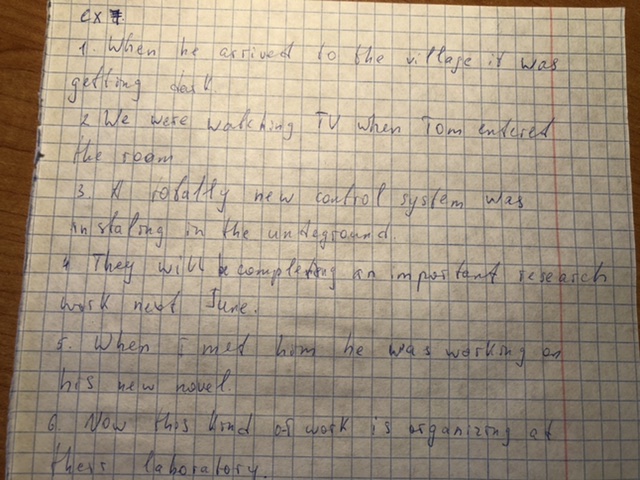 ex 7.
1. When he arrived to the village it was
getting dark
2 We were watching TV when Tom entered
the room
3. A totally new control system was
instaling in the undeground.
4 They will completing an important research
work next June.
5. When I met him he was working on
his new novel.
6. Now this kind of work is organizing at
their laboratory.